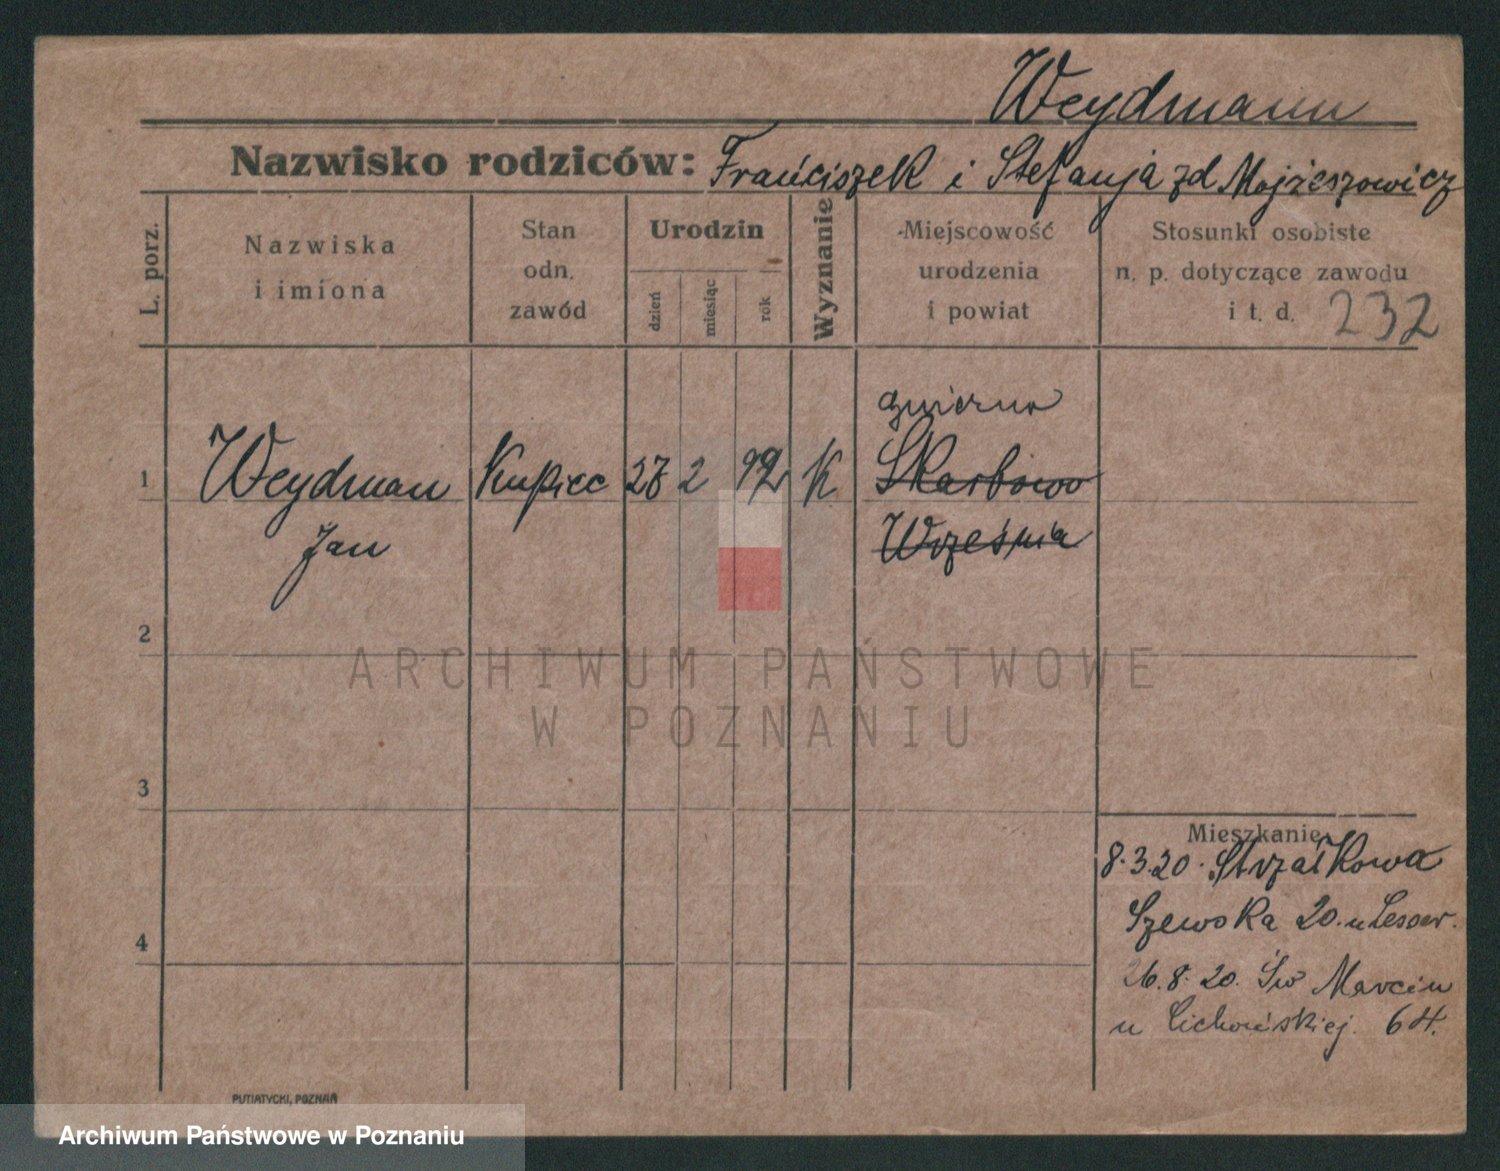 Weydmann
Nazwisko rodziców: Frańciszek i Stefanja zd Mojżeszowicz
L. porz.
Nazwiska
i imiona
Stan
odn.
zawód
Urodzin
dzień
miesiąc
rok
Wyznanie
Miejscowość
urodzenia
i powiat
Stosunki osobiste
n. p. dotyczące zawodu
i t. d. 232
1 Weydman Kupiec 28 2 92 K Skarbowo
Jan Września
2
3
4
ARCHIWUM PAŃSTWOWE
W POZNANIU
Mieszkanie
8.3.20. Strzałkowa
Szewska 20. u Lesser.
26.8.20. Św Marcin
u Cichońskiej. 64.
PUTIATYCKI, POZNAŃ
Archiwum Państwowe w Poznaniu